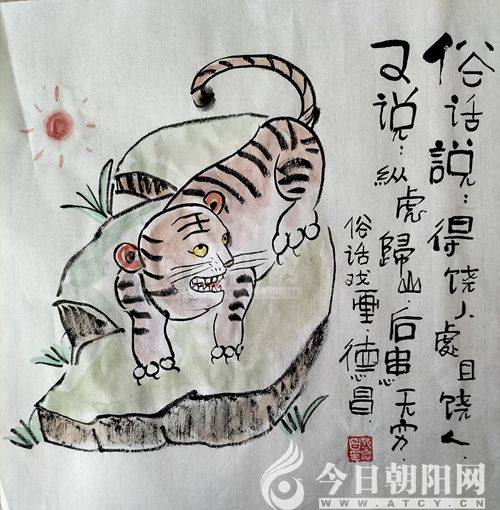 俗话說：得饶人處且饶人.
又说：纵虎歸山.后患无穷.
俗话戏畫.德昌.
今日朝阳网
WWW.ATCY.CN